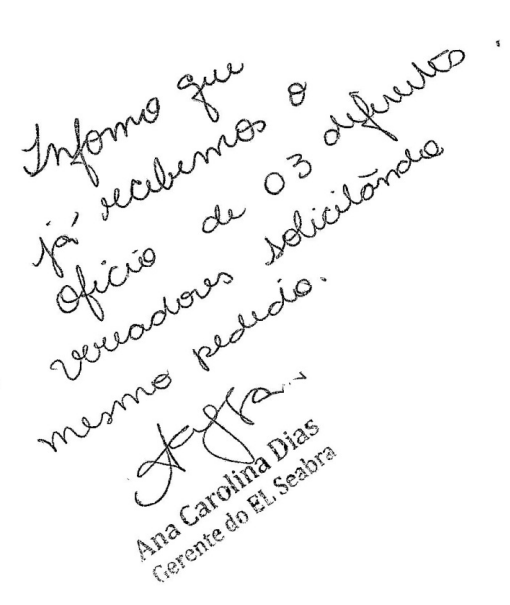 Informo que
já recebemos o
ofício de 03 diferentes
vereadores solicitando
mesmo pedido.
Ana Carolina Dias
Gerente do EL Seabra